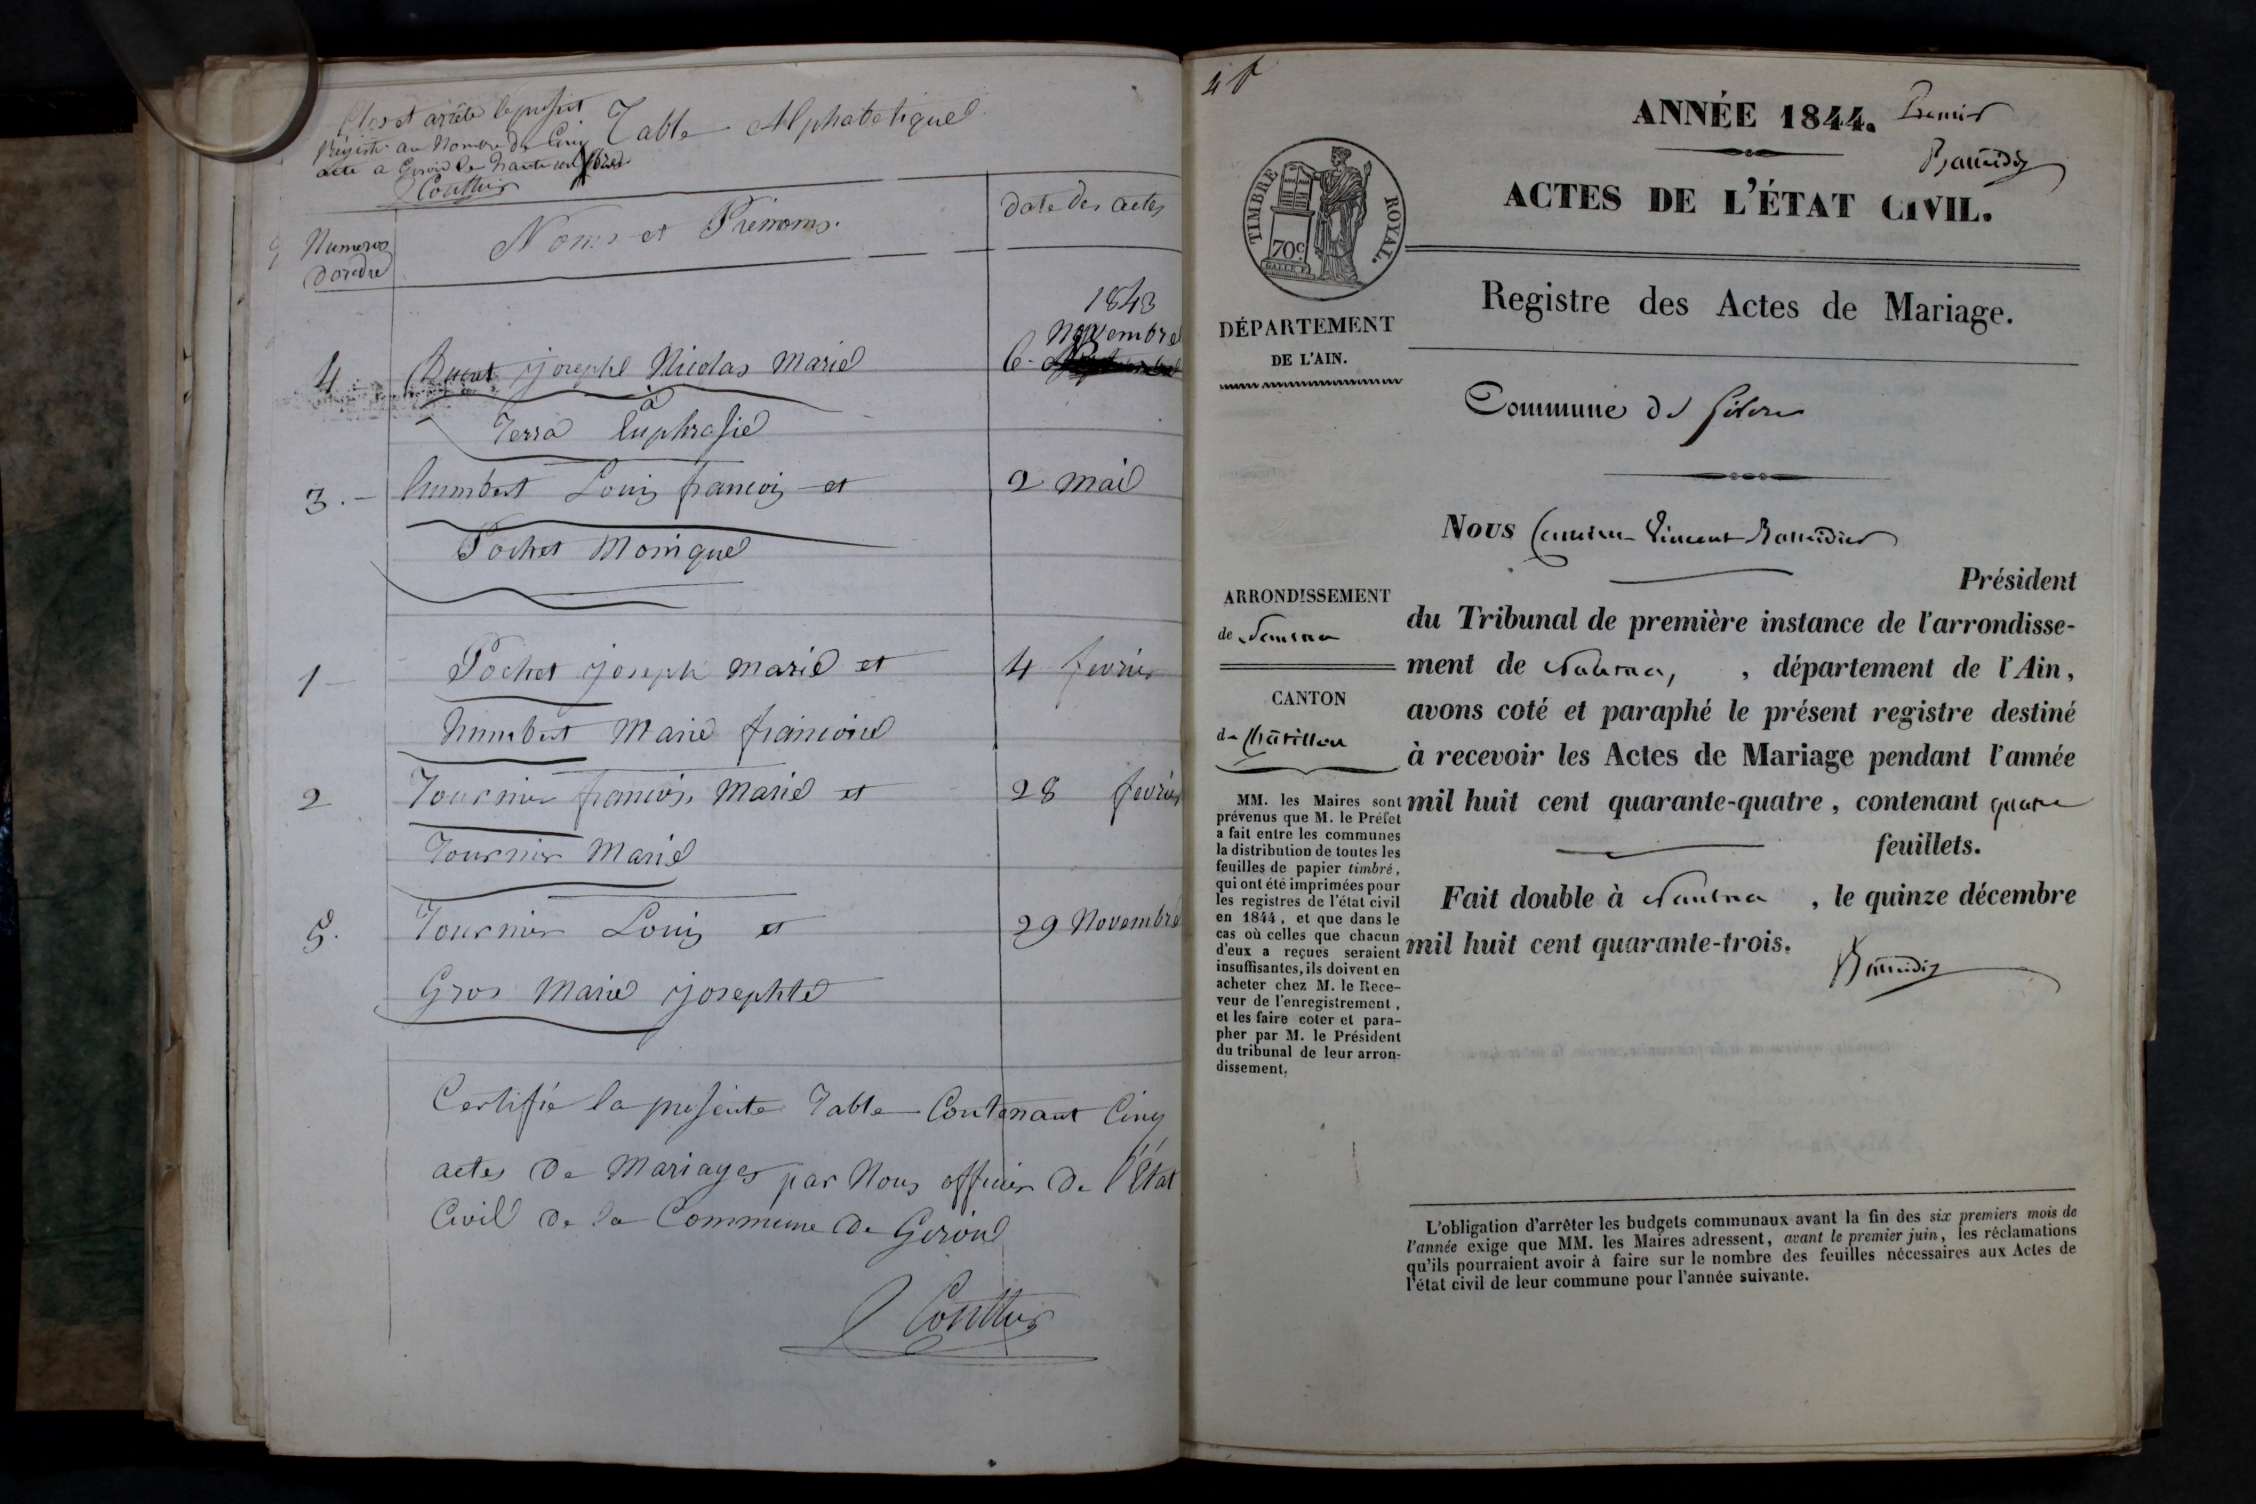 Clos et arrêté le présent
Régistre au Nombre de Cinq
acte a Giron le trente un Xbre
Couttier
Table Alphabetique
Numeros
d'ordre
Noms et Prénoms.
date des actes
1843
Novembre
4 Ducret joseph Nicolas Marie 6
à
Terra Euphrasie
3. humbert Louis francois et 2 mai
Pochet Monique
1 Pochet joseph marie et 4 fevrier
humbert Marie francoise
2 Tournier francois Marie et 28 fevrier
Tournier Marie
5. Tournier Louis et 29 Novembre
Gros Marie josephte
Certifié la présente Table Contenant Cinq
actes de Mariages par Nous officier de l'État
Civil de la Commune de Giron
Couttier
ANNÉE 1844. Premier
ACTES DE L'ÉTAT CIVIL.
TIMBRE ROYAL.
70c
Registre des Actes de Mariage.
DÉPARTEMENT
DE L'AIN.
Commune de Giron
Nous Vincent
Président
ARRONDISSEMENT
de Nantua
CANTON
de Châtillon
du Tribunal de première instance de l'arrondisse-
ment de Nantua, , département de l'Ain,
avons coté et paraphé le présent registre destiné
à recevoir les Actes de Mariage pendant l'année
mil huit cent quarante-quatre, contenant quatre
feuillets.
Fait double à Nantua , le quinze décembre
mil huit cent quarante-trois.
MM. les Maires sont
prévenus que M. le Préfet
a fait entre les communes
la distribution de toutes les
feuilles de papier timbré,
qui ont été imprimées pour
les registres de l'état civil
en 1844, et que dans le
cas où celles que chacun
d'eux a reçues seraient
insuffisantes, ils doivent en
acheter chez M. le Rece-
veur de l'enregistrement,
et les faire coter et para-
pher par M. le Président
du tribunal de leur arron-
dissement.
L'obligation d'arrêter les budgets communaux avant la fin des six premiers mois de
l'année exige que MM. les Maires adressent, avant le premier juin, les réclamations
qu'ils pourraient avoir à faire sur le nombre des feuilles nécessaires aux Actes de
l'état civil de leur commune pour l'année suivante.